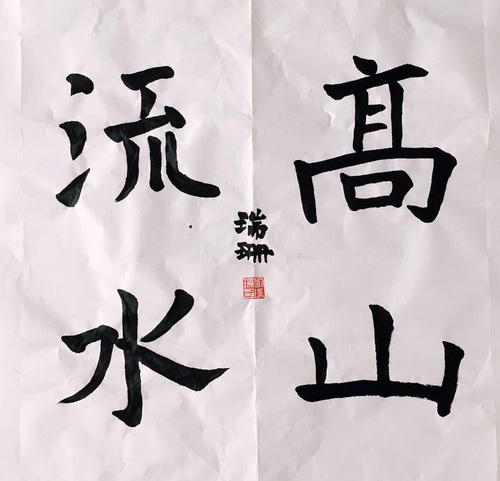 髙山
流水
瑞珊